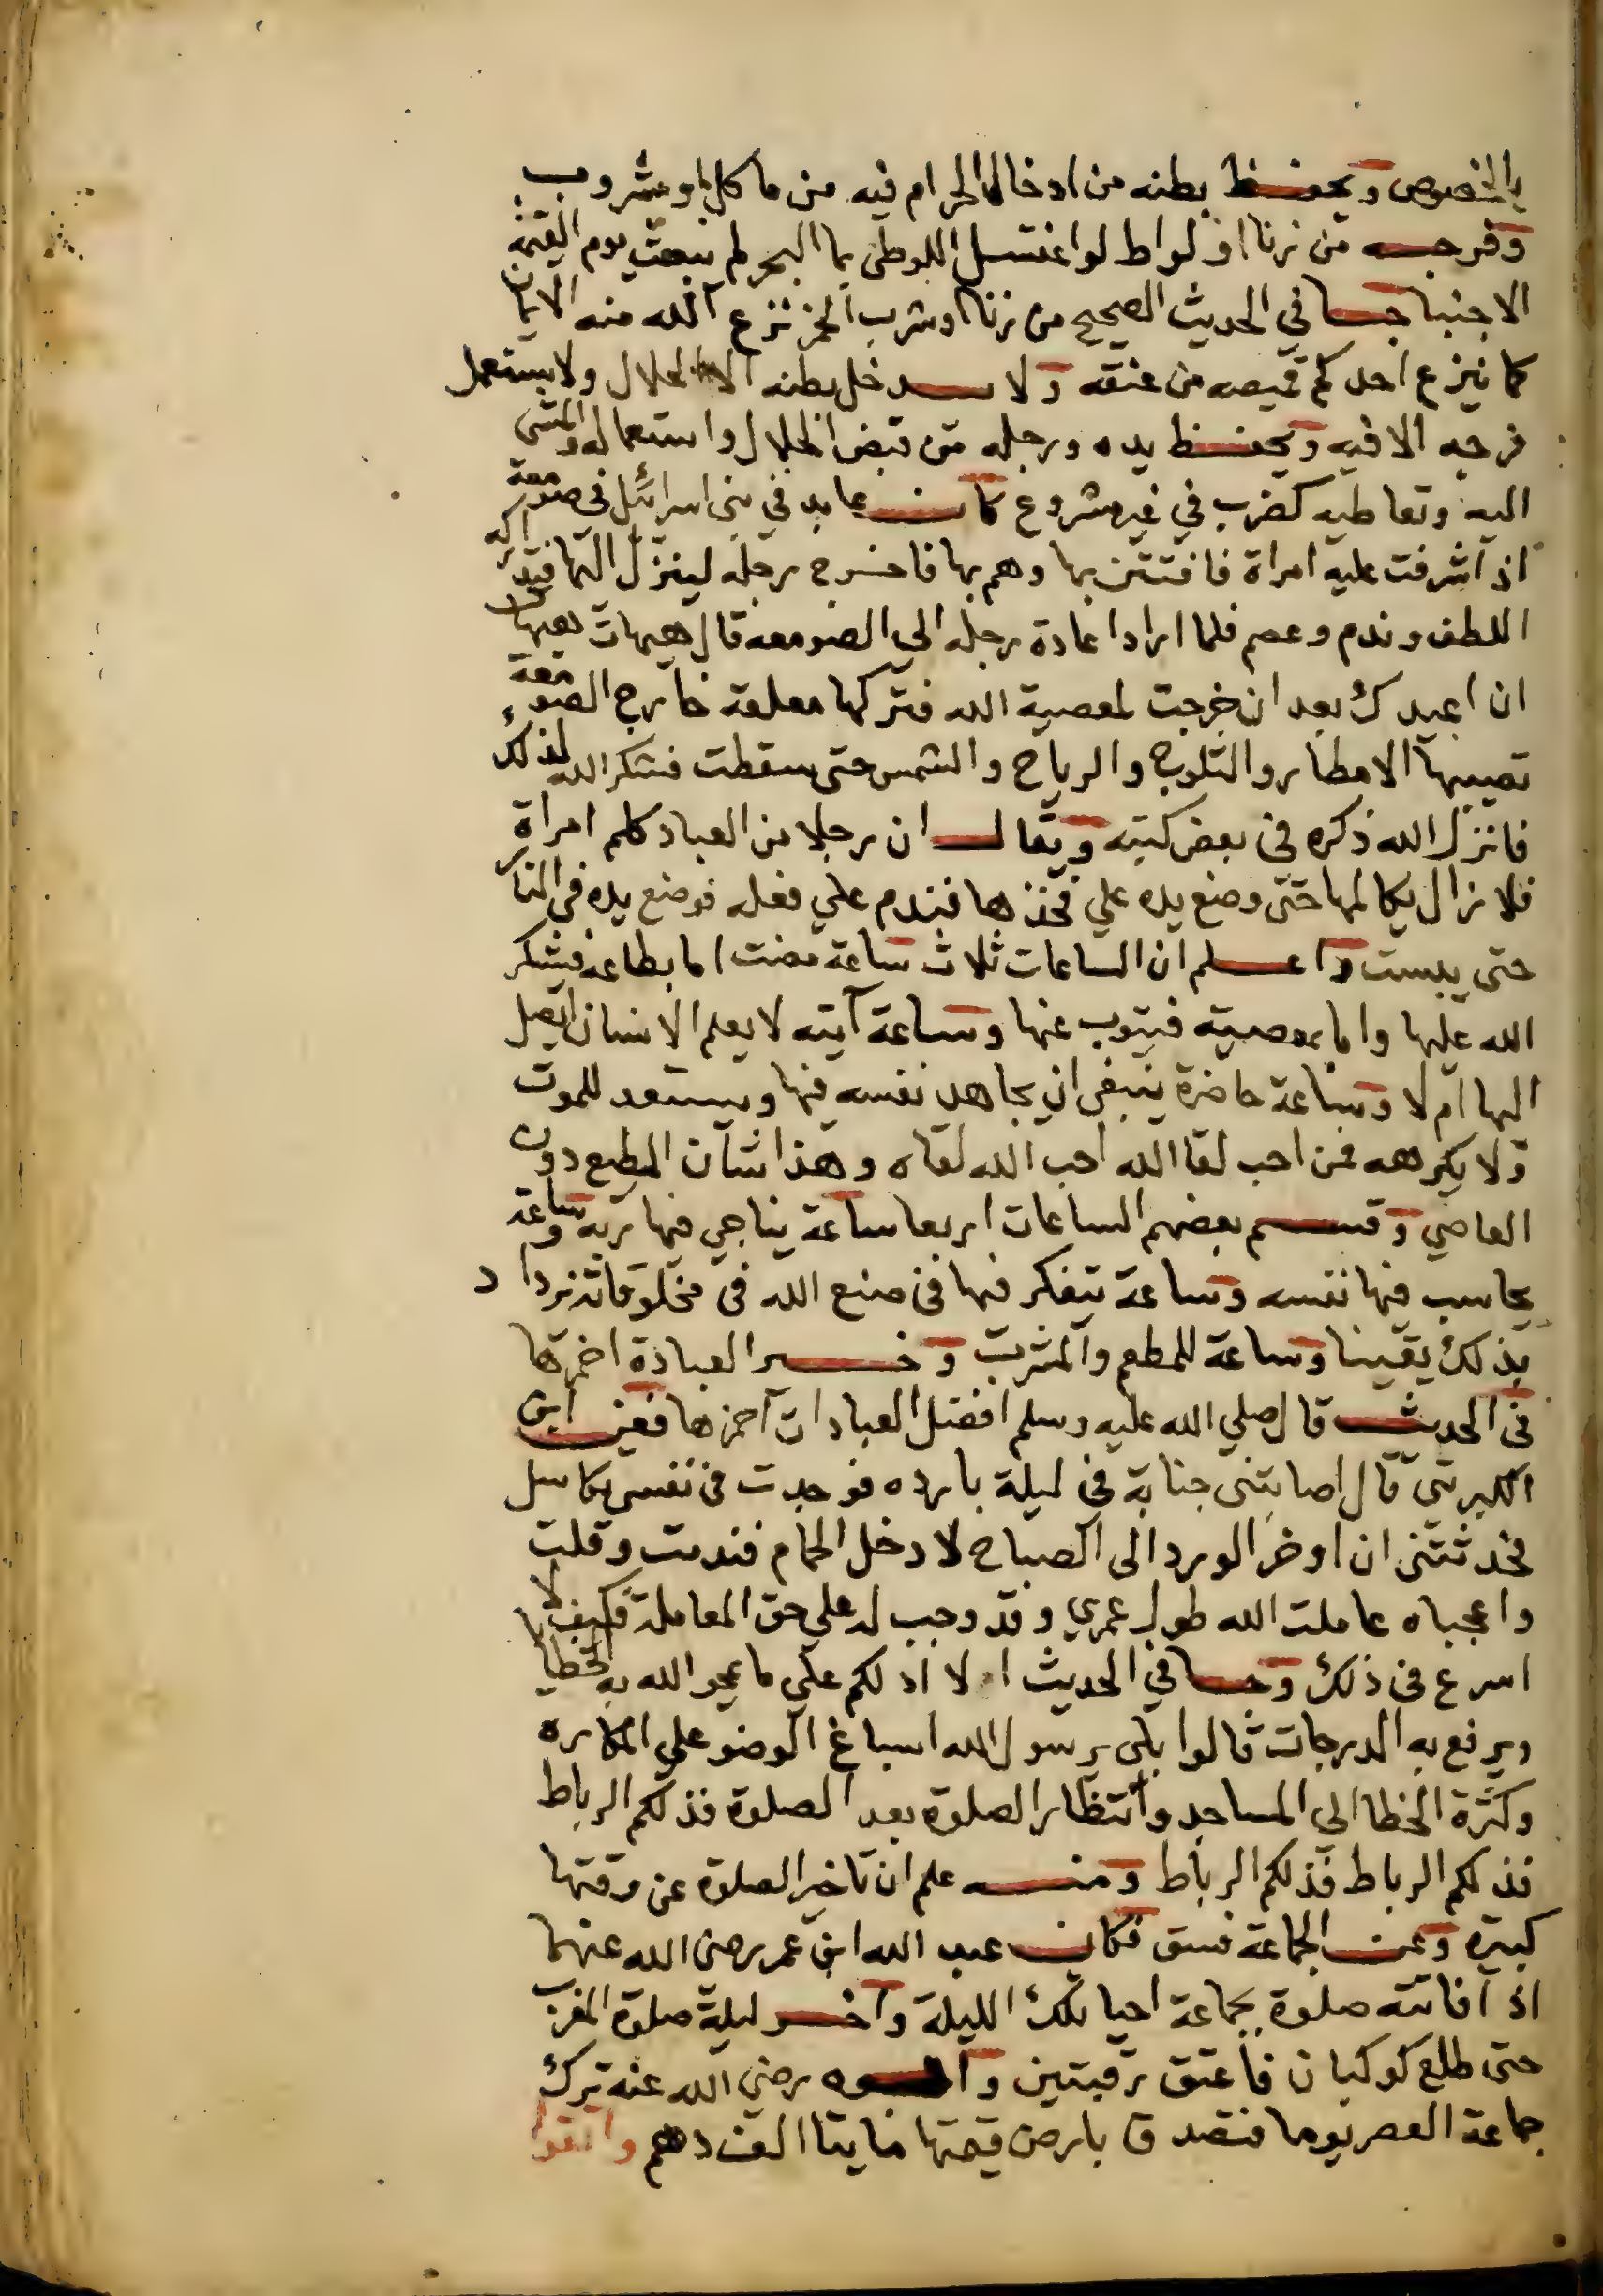 بالخصوص ويحفظ بطنه من ادخال الحرام فيه من ماكل او مشروب
وفرجه من زنا او لواط لو اغتسل اللوطي بما البحر لم يبعث يوم القيمة
الا جنبا جسا في الحديث الصحيح من زنا او شرب الخمر نزع الله منه الايمان
كما ينزع احدكم قميصه من عنقه ولا يدخل بطنه الا الحلال ولا يستعمل
فرجه الا فيه ويحفظ يده ورجله من قبض الحلال واستعماله والمشي
اليه وتعاطيه كضرب في غير مشروع كان عابد في بني اسرائيل في صومعة
اذ اشرفت عليه امراة فافتتن بها وهم بها فاخرج رجله لينزل اليها فتداركه
اللطف وندم وعصم فلما اراد اعادة رجله الى الصومعه قال هيهات هيهات
ان اعيدك بعد ان خرجت لمعصية الله فتركها معلقة خارج الصومعة
تصيبها الامطار والثلوج والرياح والشمس حتى سقطت فشكر الله لذلك
فانزل الله ذكره في بعض كتبه ويقال ان رجلا من العباد كلم امراة
فلا زال يكالمها حتى وضع يده علي فخذها فندم علي فعله فوضع يده في النار
حتى يبست واعلم ان الساعات ثلاث ساعة مضت اما بطاعة فيشكر
الله عليها واما بمعصية فيتوب عنها وساعة آتيه لا يعلم الانسان ايصل
اليها ام لا وساعة حاضرة ينبغي ان يجاهد نفسه فيها ويستعد للموت
ولا يكرهه فمن احب لقا الله احب الله لقاه وهذا شان المطيع دون
العاصي وقسم بعضهم الساعات اربعا ساعة يناجي فيها ربه وساعة
يحاسب فيها نفسه وساعة يتفكر فيها في صنع الله في مخلوقاته يزداد
بذلك يقينا وساعة للمطعم والمشرب وخير العبادة احمزها
في الحديث قال صلي الله عليه وسلم افضل العبادات احمزها فعن ابن
الكبريتي قال اصابتني جنابة في ليلة بارده فوجدت في نفسي تكاسل
فحدثتني ان اوخر الورد الى الصباح لادخل الحمام فندمت وقلت
واعجباه عاملت الله طول عمري وقد وجب له علي حق المعاملة فكيف لا
اسرع في ذلك وجا في الحديث الا ادلكم علي ما يمحو الله به الخطايا
ويرفع به الدرجات قالوا بلى يرسول الله اسباغ الوضو علي المكاره
وكثرة الخطا الي المساجد وانتظار الصلوة بعد الصلوة فذلكم الرباط
فذلكم الرباط فذلكم الرباط ومنه علم ان تاخير الصلوة عن وقتها
كبيرة وعن الجماعة فسق فكان عبد الله ابن عمر رضي الله عنهما
اذا فاتته صلوة بجماعة احيا تلك الليلة واخر ليلة صلوة المغرب
حتى طلع كوكبان فاعتق رقبتين وابوه رضي الله عنه ترك
جماعة العصر يوما فتصدق بارض قيمتها مايتا الف دهم واتقوا